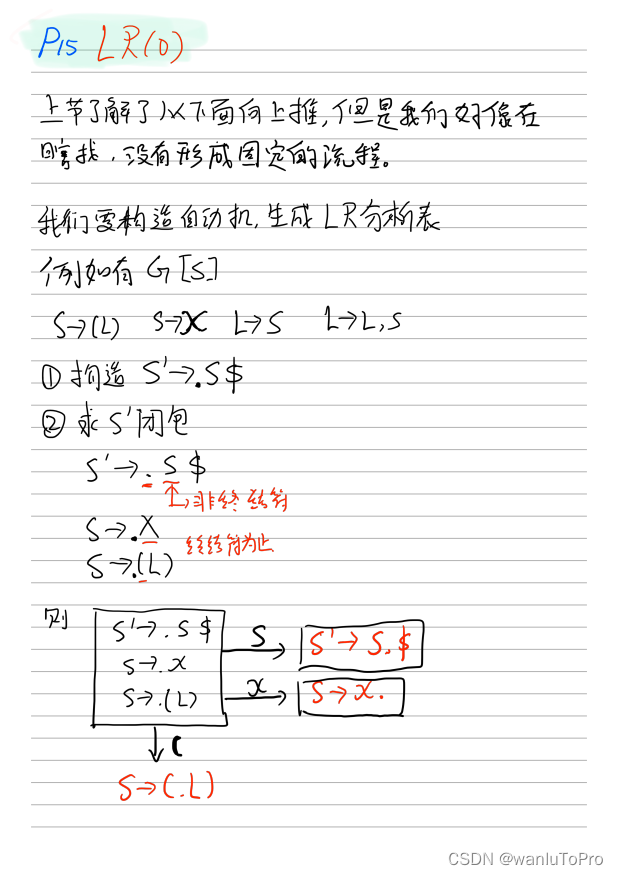 P15 LR(0)
上节了解了从下面向上推,但是我们好像在
瞎找,没有形成固定的流程。
我们要构造自动机,生成LR分析表
例如有 G[S]
S→(L) S→X L→S L→L,S
① 构造 S'→.S$
② 求S'闭包
S'→.S$
非终结符
S→.X
终结符为止
S→.(L)
则
S'→.S$
S
S'→S.$
S→.x
S→.(L)
x
S→x.
(
S→(.L)
CSDN @wanluToPro